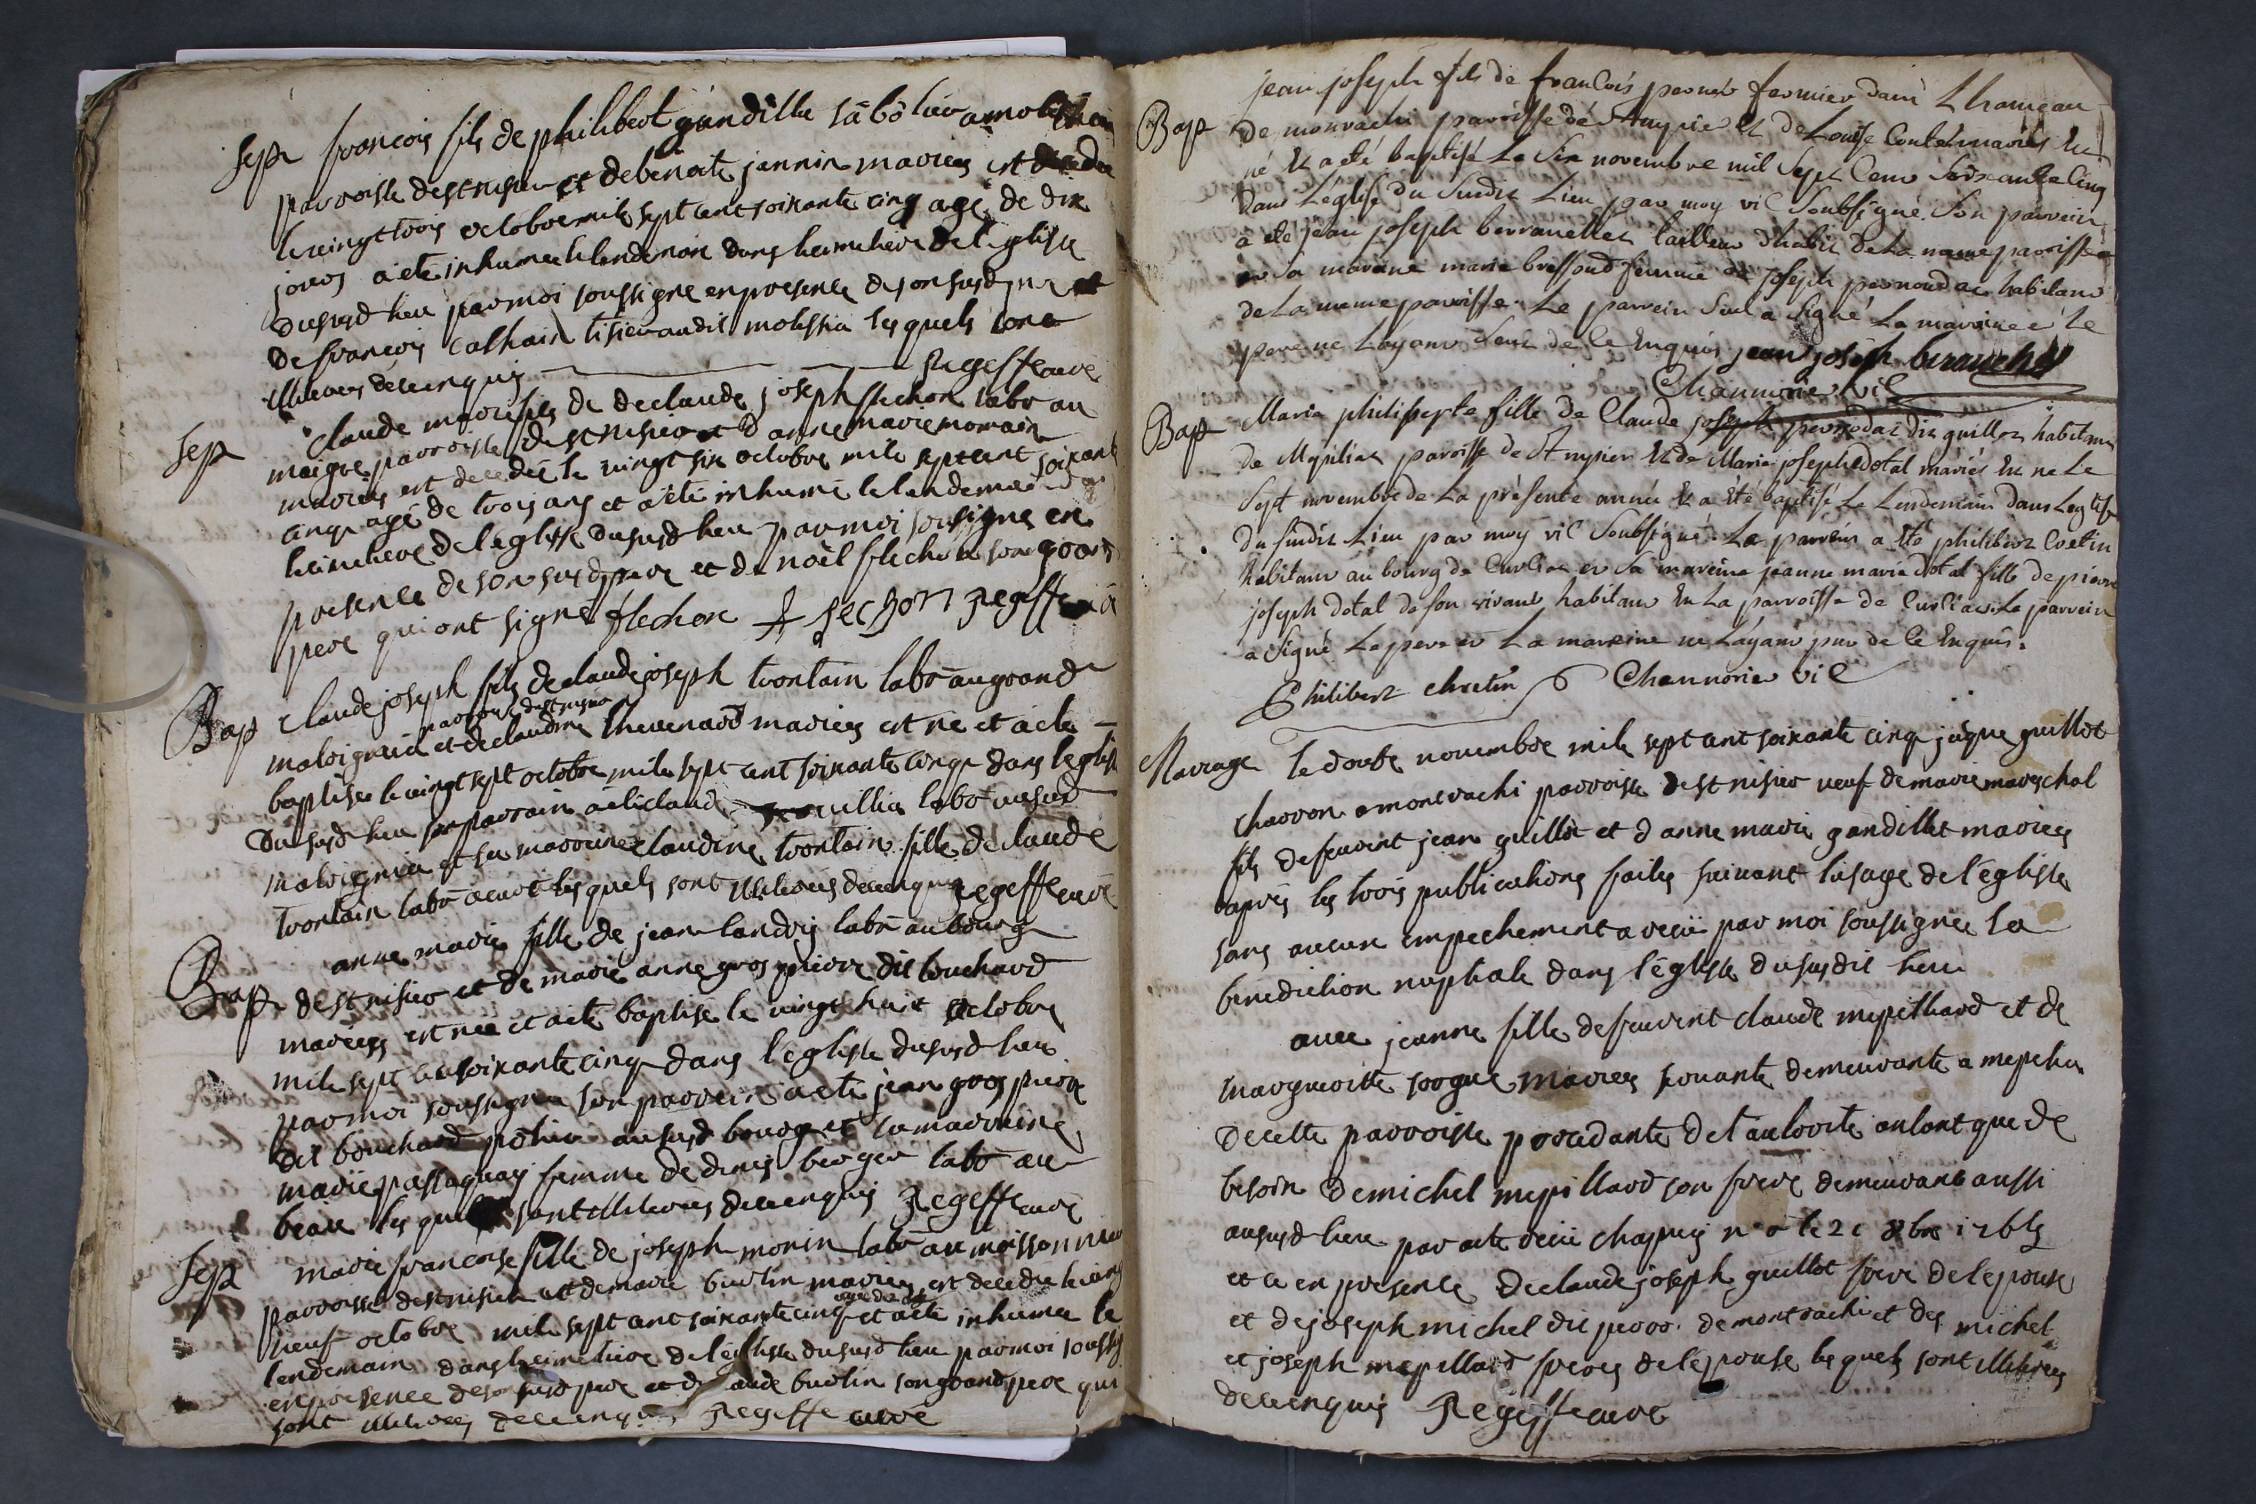 Sep françois fils de philibert gandillet
parroisse de st nisier et de benoite jannin mariees est
le vingt trois octobre mile sept cent soixante cinq agé de dix
jours a ete inhumee le lendemain dans le cimetiere de leglise
dususd lieu par moi soussigne en presence de son susd pere et
de françois Calhain tisier audit molissia les quels sont
illiterees de ce enquis Regeffe cure
Sep Claude marie fils de de claude joseph flechon labo au
maigre parroisse de st nisier et d anne marie monain
mariees est decedee le vingt six octobre mile sept cent soixante
cinq agé de trois ans et a eté inhumé le lendemain
le cimetiere de leglise dususd lieu par moi soussigne en
presence de son susd pere et de noël flechon son grand
pere qui ont signe flechon flechon Regeffe cure
Bap claude joseph fils de claude joseph trontain labo au grand
parroisse de st nisier
malvigneid et de claudine thevenard mariees est né et a ete
baptisee le vingt sept octobre mile sept cent soixante cinq dans leglise
dususd lieu son parrain a ete claude labo ausud
et sa marreine claudine trontain fille de claude
trontain labo les quels sont illiterees de ce enquis Regeffe cure
Bap anne marie fille de jean landry labo au bourg
de st nisier et de marie anne gros pierre dit bouchard
mariees est nee et a ete baptise le vingt huit octobre
mile sept c soixante cinq dans l eglise dususd lieu
par moi soussigne son parrein a ete jean gros pierre
dit bouchard potier ausud bourg et sa marreine
marie passaquay femme de denis berger labo au
beau les quels sont illiterees de ce enquis Regeffe cure
Sep marie francoise fille de joseph monin labo au moissonnier
parroisse de st nisier et de marie burtin mariees est decedee le vingt
neuf octobre mile sept cent soixante cinq et a ete inhumee le
lendemain dans le cimetiere de l eglise dususd lieu par moi soussig
en presence de son susd pere et de claude burtin son grand pere qui
sont illiterees de ce enquis Regeffe cure
jean joseph fils de francois perner fermier dans L hameau
Bap de monrachi parroisse de st nizier et de Louise Contet mariés En
né Et a été baptisé Le Six novembre mil Sept Cens Soixante Cinq
dans L'église du Susdit Lieu par moy vic Soubsigné. Son parrein
a été jean joseph berrauettet tailleur d'habit de La meme parroisse
et Sa marene marie bressoud femme de joseph pernoudat habitans
de La meme parroisse. Le parrein Seul a Signé La mareine et Le
pere ne Layant Seut de Ce Enquis jean joseph
Channorier vic
Bap Marie philipperte fille de Claude joseph pernodat dit guillot habitans
de Mépiliat paroisse de St nizier Et de Marie josephe dotal mariés En ne Le
Sept novembre de La présente année Et a été baptisé Le Lendemain dans Leglise
du Susdit Lieu par moy vic Soubsigné. Le parrein a été philibert Cretin
habitans au bourg de Curciat et Sa mareine jeanne marie dotal fille de pierre
joseph dotal de son vivant habitans En La parroisse de Curciat. Le parrein
a Signé Le pere et La mareine ne Layant pu de Ce Enquis.
Philibert chretin Channorier vic
Mariage le douse novembre mile sept cent soixante cinq jaque guillot
charron a montrachi parroisse de st nisier veuf de marie mareschal
fils de feuvent jean guillot et d anne marie gandillet mariees
apres les trois publications faites suivant l'usage de l'églisse
sans aucun empechement a recü par moi soussignee la
benediction nuptiale dans l'eglise dususdit lieu
avec jeanne fille de feuvent claude mepillard et de
margueritte mariees servante demeurante a
de cette parroisse procedante de l autorite autant que de
besoin de michel mepillard son frere demeurant aussi
ausud lieu par acte recü chapuis no le 8bre 1765
et ce en presence de claude joseph guillot frere de lepoux
et de joseph michel dit perro. de montrachi et des michel
et joseph mepillard freres de l'epouse les quels sont illiterees
de ce enquis Regeffe cure